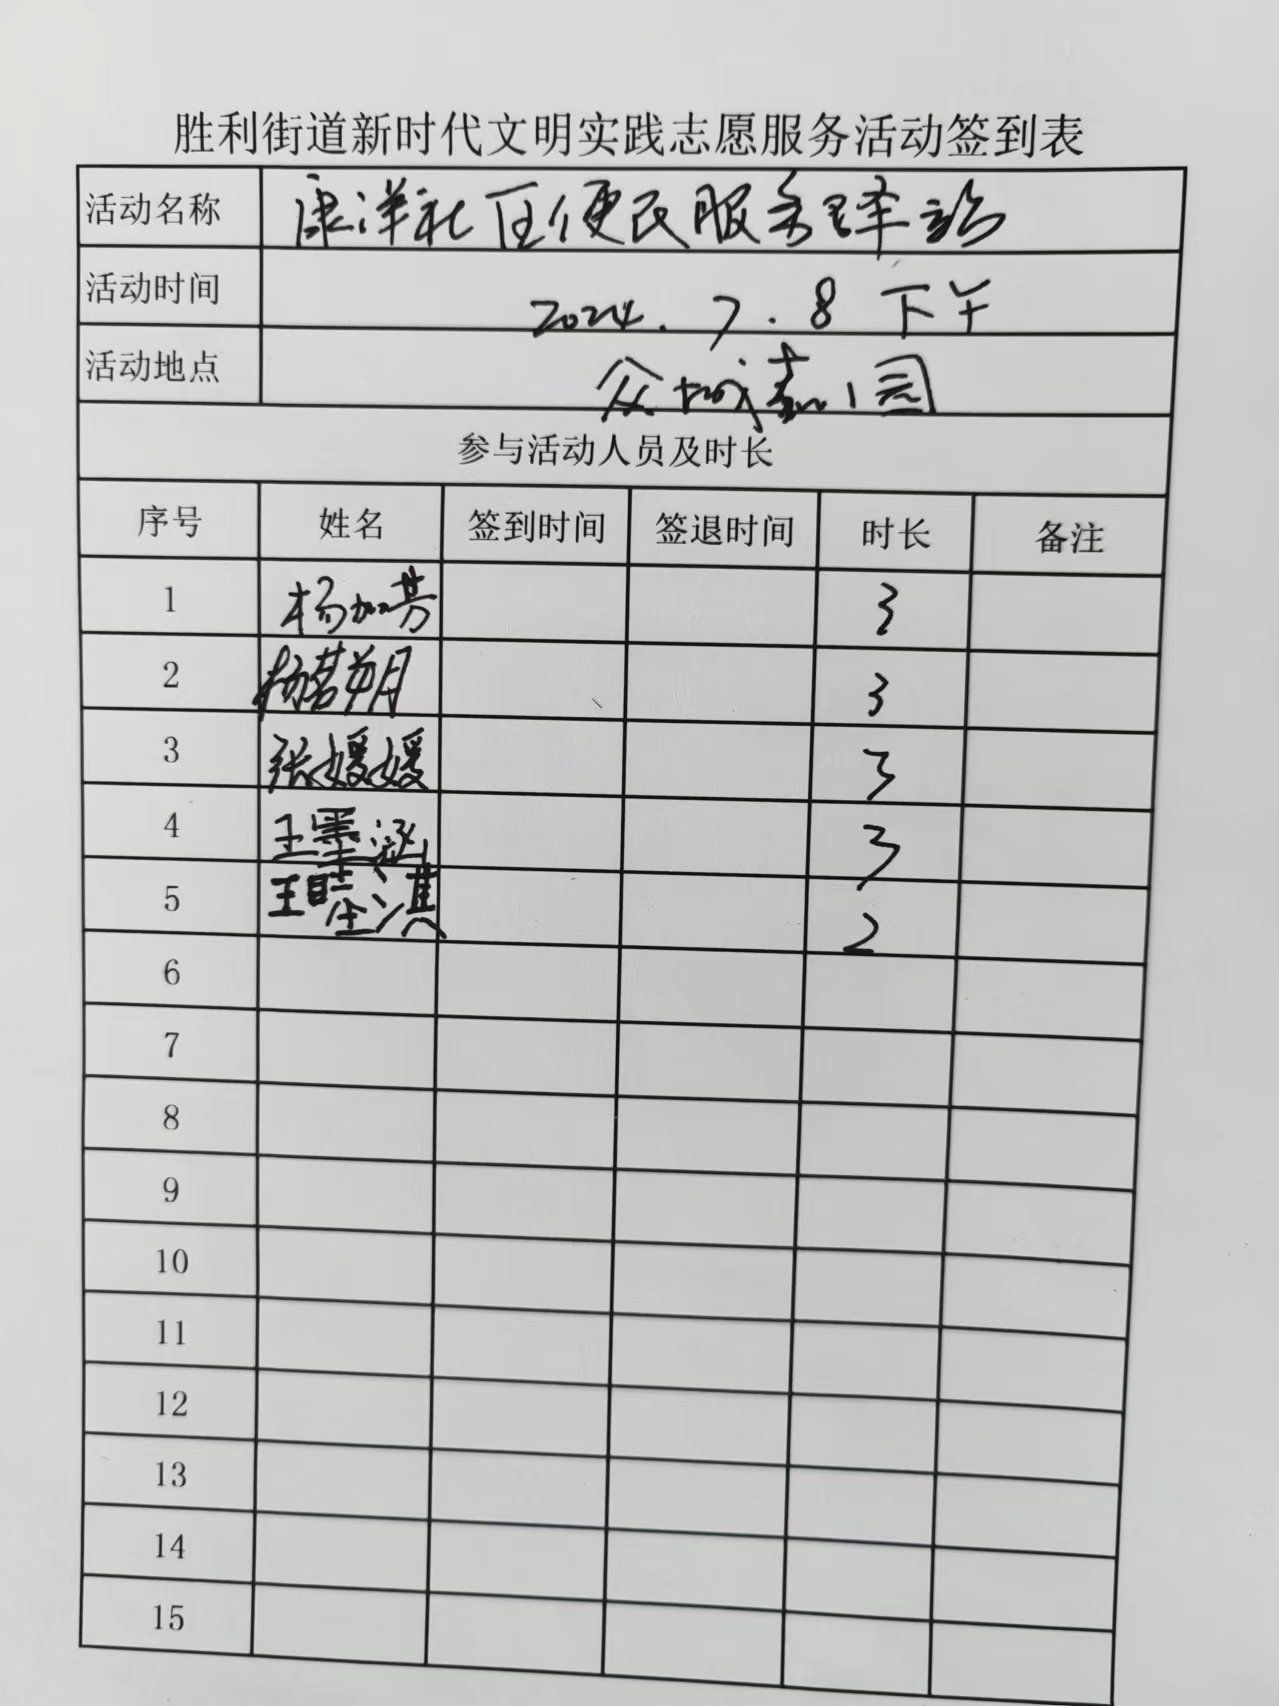 胜利街道新时代文明实践志愿服务活动签到表
活动名称 康洋社区便民服务驿站
活动时间 2024.7.8 下午
活动地点 众城嘉园
参与活动人员及时长
序号 姓名 签到时间 签退时间 时长 备注
1 杨加芳 3
2 杨茗朔 3
3 张媛媛 3
4 王墨涵 3
5 王 淇 2
6
7
8
9
10
11
12
13
14
15